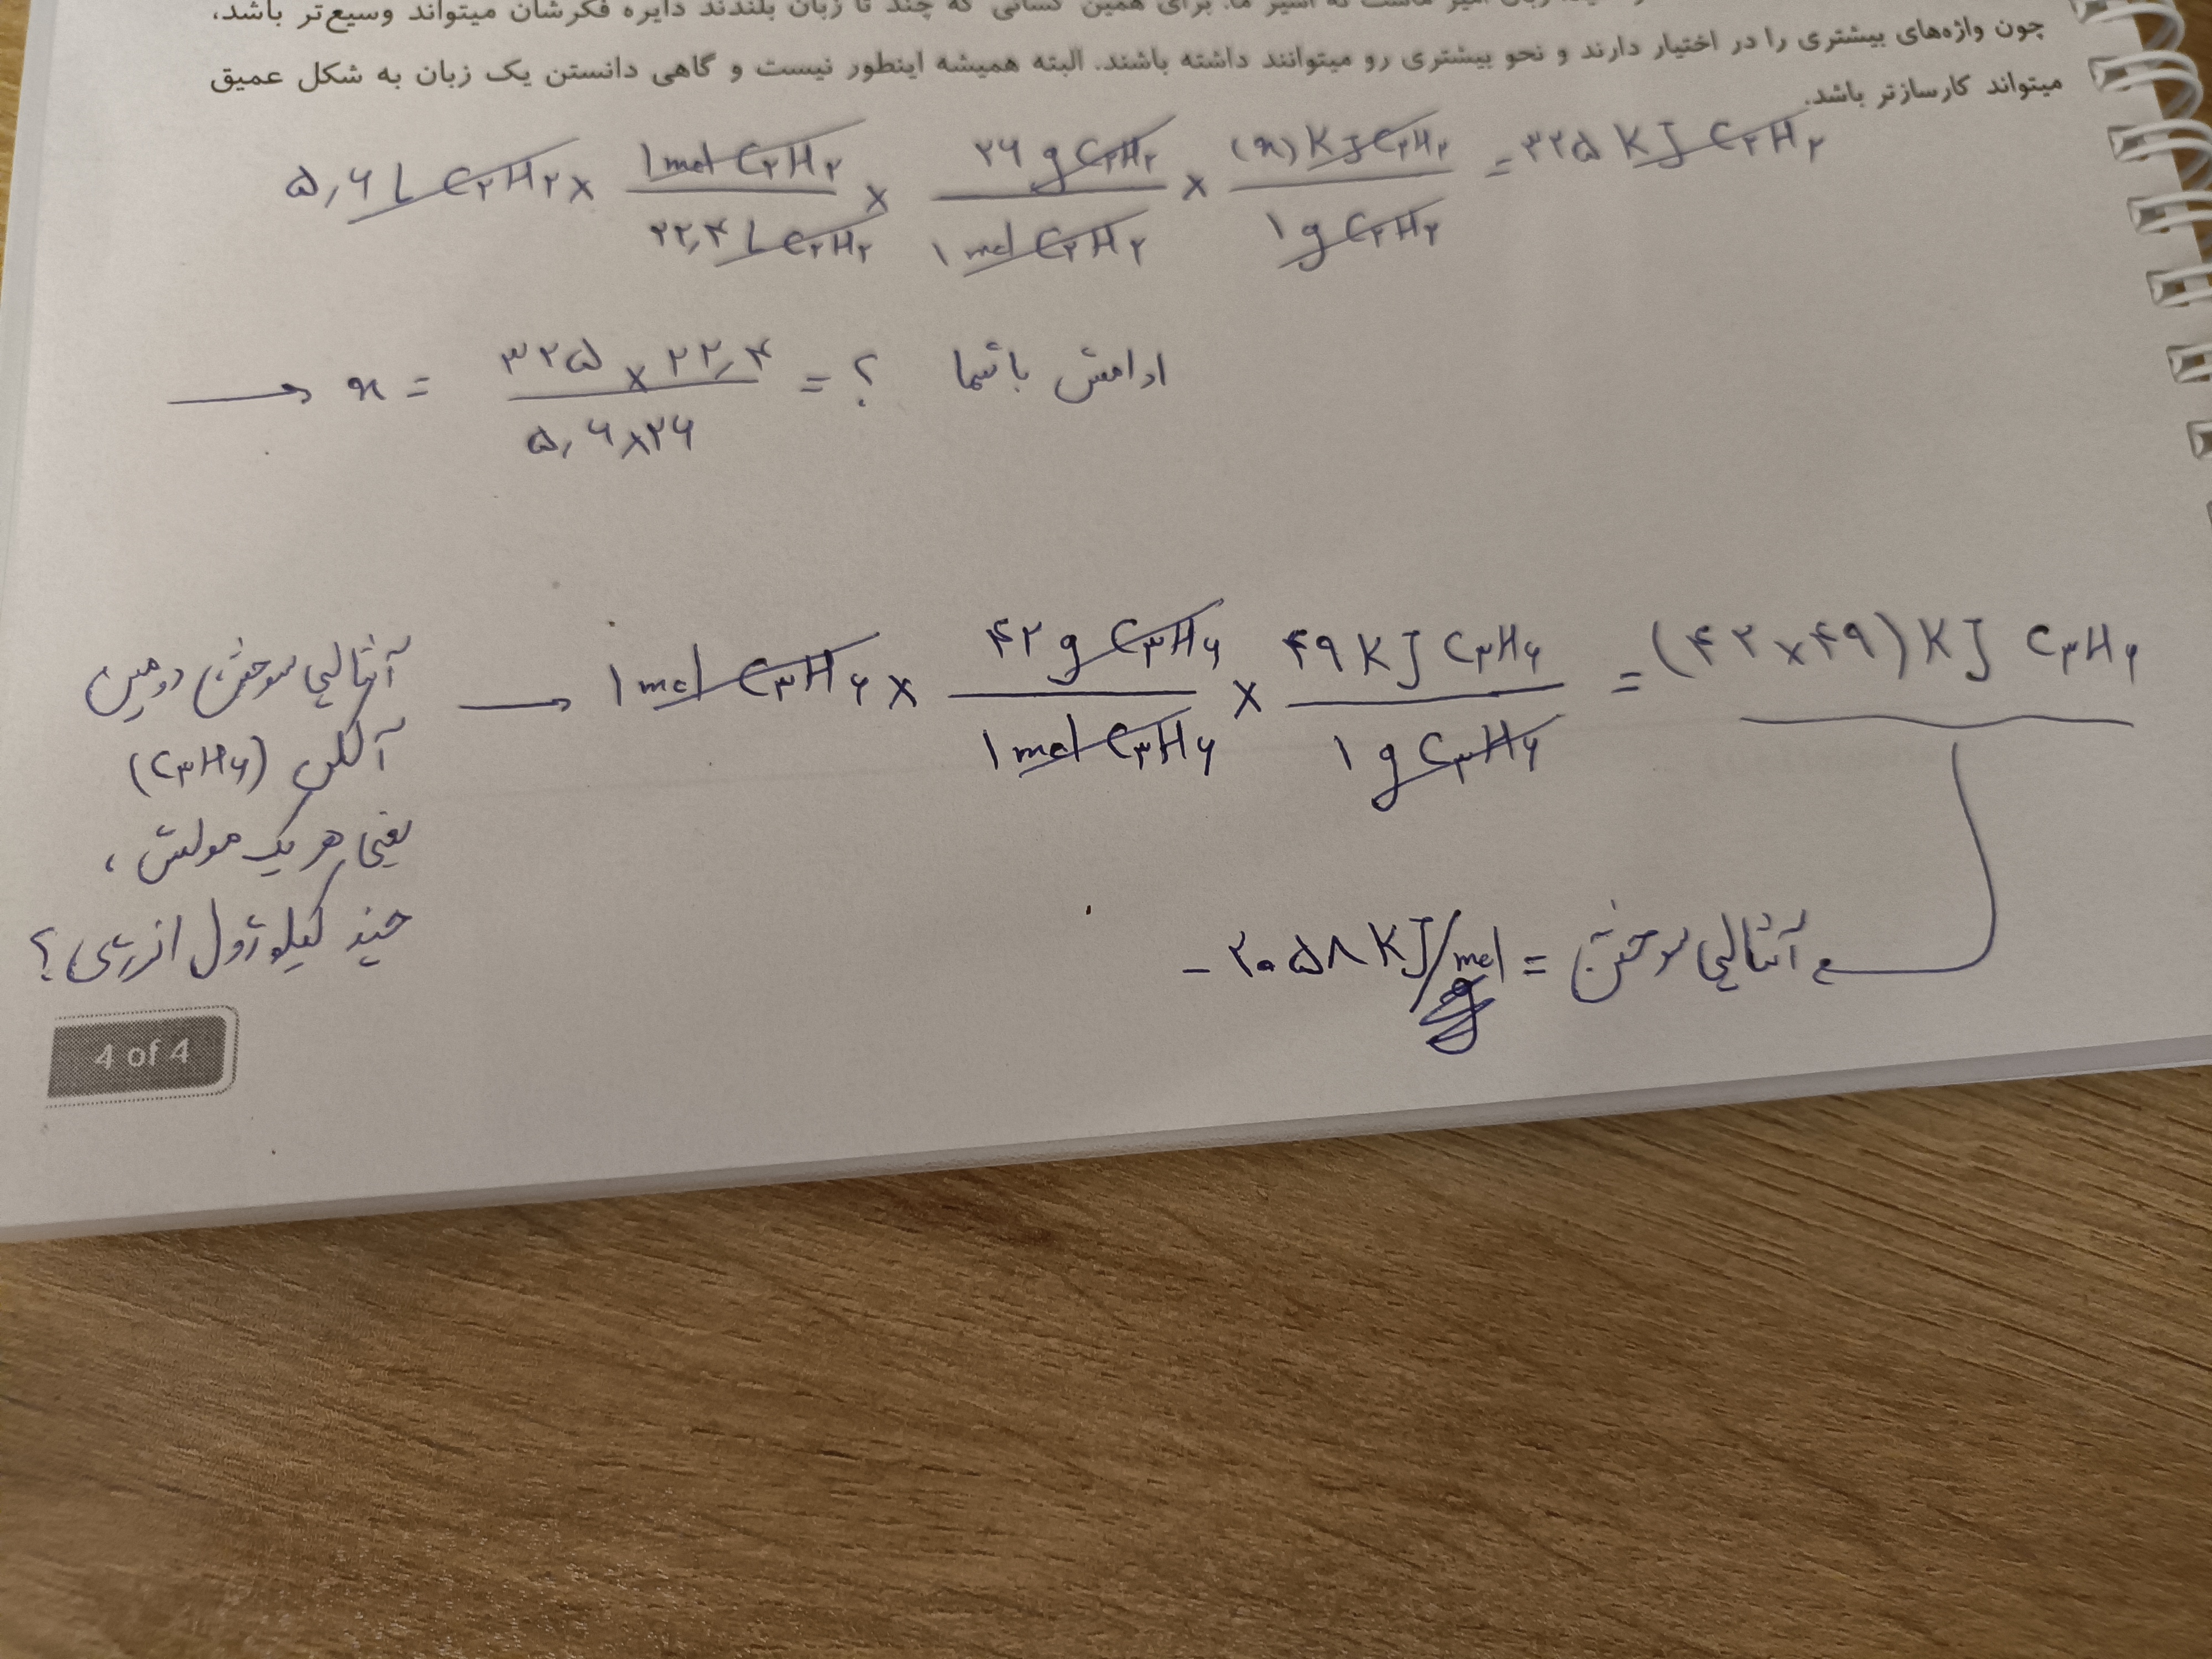 زبان امیر ماست نه اسیر ما. برای همین کسانی که چند تا زبان بلدند دایره فکرشان میتواند وسیع‌تر باشد،
چون واژه‌های بیشتری را در اختیار دارند و نحو بیشتری رو میتوانند داشته باشند. البته همیشه اینطور نیست و گاهی دانستن یک زبان به شکل عمیق
میتواند کارسازتر باشد.
۵,۶ L C۲H۲ × ۱ mol C۲H۲ / ۲۲,۴ L C۲H۲ × ۲۶ g C۲H۲ / ۱ mol C۲H۲ × (x) KJ C۲H۲ / ۱ g C۲H۲ = ۳۲۵ KJ C۲H۲
→ x = ۳۲۵ × ۲۲,۴ / ۵,۶ × ۲۶ = ؟ ادامش با شما
آنتالپی سوختن دومین
آلکن (C۳H۶)
یعنی هر یک مولش،
چند کیلوژول انرژی؟
→ ۱ mol C۳H۶ × ۴۲ g C۳H۶ / ۱ mol C۳H۶ × ۴۹ KJ C۳H۶ / ۱ g C۳H۶ = (۴۲×۴۹) KJ C۳H۶
آنتالپی سوختن = -۲۰۵۸ KJ/mol
4 of 4